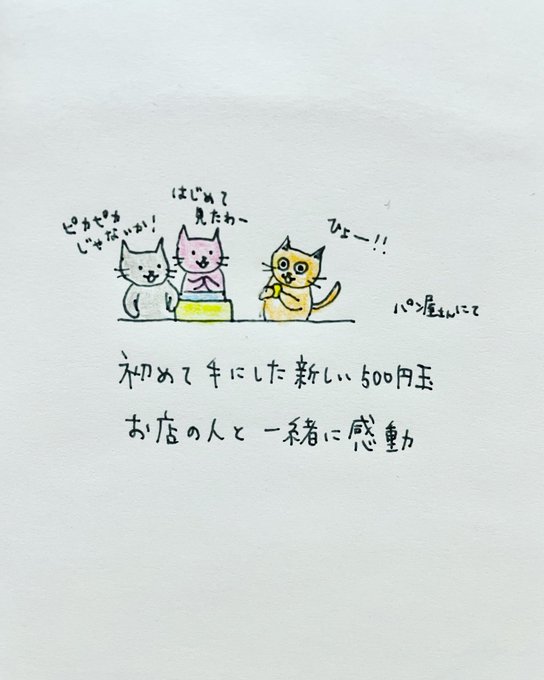 ピカピカ
じゃないか!
はじめて
見たわー
ひょー!!
パン屋さんにて
初めて手にした新しい500円玉
お店の人と一緒に感動